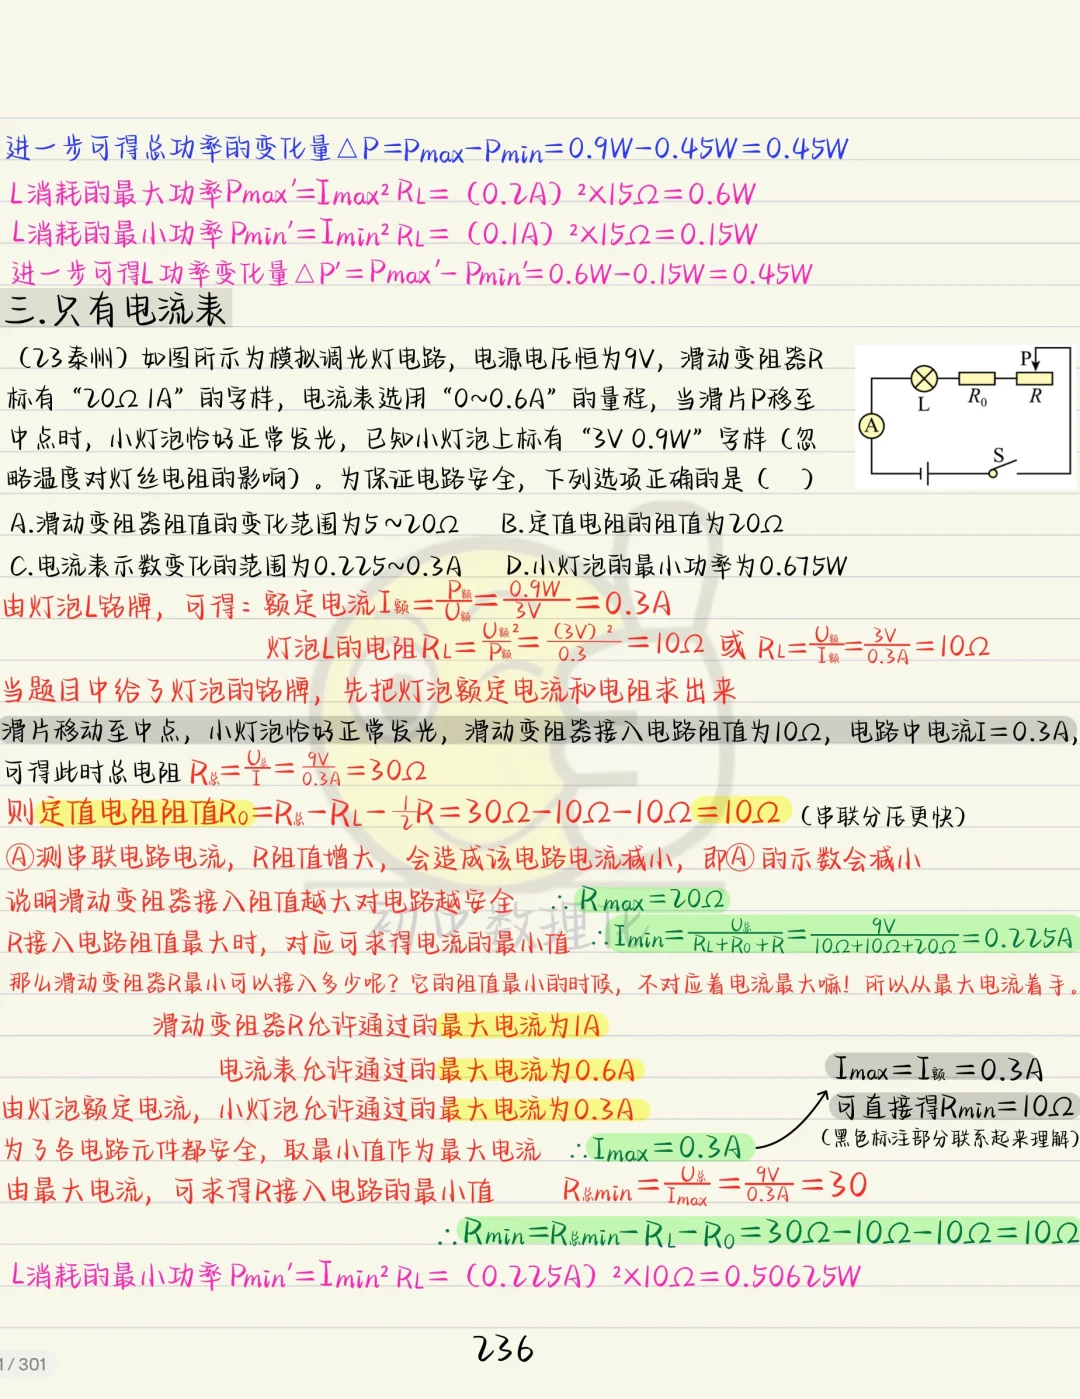 进一步可得总功率的变化量△P=Pmax-Pmin=0.9W-0.45W=0.45W
L消耗的最大功率Pmax′=Imax²RL=（0.2A）²×15Ω=0.6W
L消耗的最小功率Pmin′=Imin²RL=（0.1A）²×15Ω=0.15W
进一步可得L功率变化量△P′=Pmax′-Pmin′=0.6W-0.15W=0.45W
三.只有电流表
（23泰州）如图所示为模拟调光灯电路，电源电压恒为9V，滑动变阻器R
标有“20Ω 1A”的字样，电流表选用“0~0.6A”的量程，当滑片P移至
中点时，小灯泡恰好正常发光，已知小灯泡上标有“3V 0.9W”字样（忽
略温度对灯丝电阻的影响）。为保证电路安全，下列选项正确的是（ ）
P
L R₀ R
A
S
A.滑动变阻器阻值的变化范围为5~20Ω B.定值电阻的阻值为20Ω
C.电流表示数变化的范围为0.225~0.3A D.小灯泡的最小功率为0.675W
由灯泡L铭牌，可得：额定电流I额=P额/U额=0.9W/3V=0.3A
灯泡L的电阻RL=U额²/P额=（3V）²/0.3=10Ω 或 RL=U额/I额=3V/0.3A=10Ω
当题目中给了灯泡的铭牌，先把灯泡额定电流和电阻求出来
滑片移动至中点，小灯泡恰好正常发光，滑动变阻器接入电路阻值为10Ω，电路中电流I=0.3A,
可得此时总电阻R总=U总/I=9V/0.3A=30Ω
则定值电阻阻值R0=R总-RL-½R=30Ω-10Ω-10Ω=10Ω（串联分压更快）
Ⓐ测串联电路电流，R阻值增大，会造成该电路电流减小，即Ⓐ的示数会减小
说明滑动变阻器接入阻值越大对电路越安全 ∴Rmax=20Ω
初中数理化
R接入电路阻值最大时，对应可求得电流的最小值 ∴Imin=U总/RL+R0+R=9V/10Ω+10Ω+20Ω=0.225A
那么滑动变阻器R最小可以接入多少呢？它的阻值最小的时候，不对应着电流最大嘛！所以从最大电流着手。
滑动变阻器R允许通过的最大电流为1A
电流表允许通过的最大电流为0.6A
Imax=I额=0.3A
由灯泡额定电流，小灯泡允许通过的最大电流为0.3A
可直接得Rmin=10Ω
（黑色标注部分联系起来理解）
为了各电路元件都安全，取最小值作为最大电流 ∴Imax=0.3A
由最大电流，可求得R接入电路的最小值 R总min=U总/Imax=9V/0.3A=30
∴Rmin=R总min-RL-R0=30Ω-10Ω-10Ω=10Ω
L消耗的最小功率Pmin′=Imin²RL=（0.225A）²×10Ω=0.50625W
236
1/301